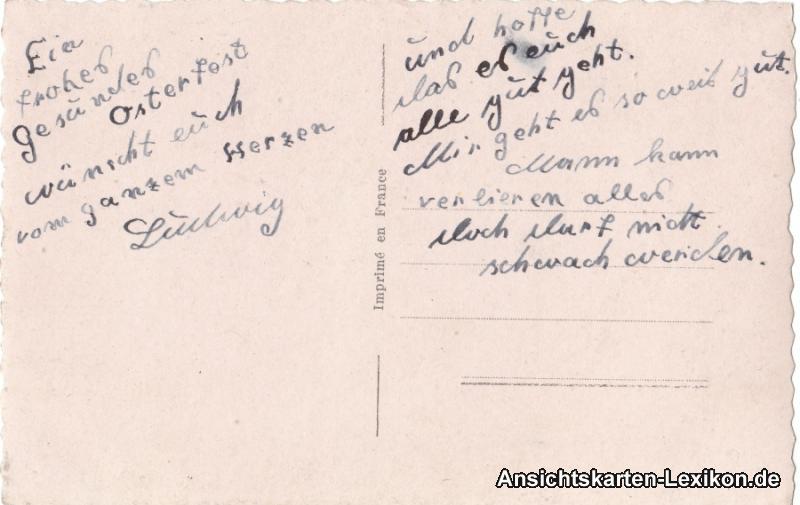 Ein
frohes
gesundes
Osterfest
wünscht euch
vom ganzem Herzen
Ludwig
und hoffe
das es euch
alle gut geht.
Mir geht es so weit gut.
Mann kann
verlieren alles
doch darf nicht
schwach werden.
Imprimé en France
Ansichtskarten-Lexikon.de